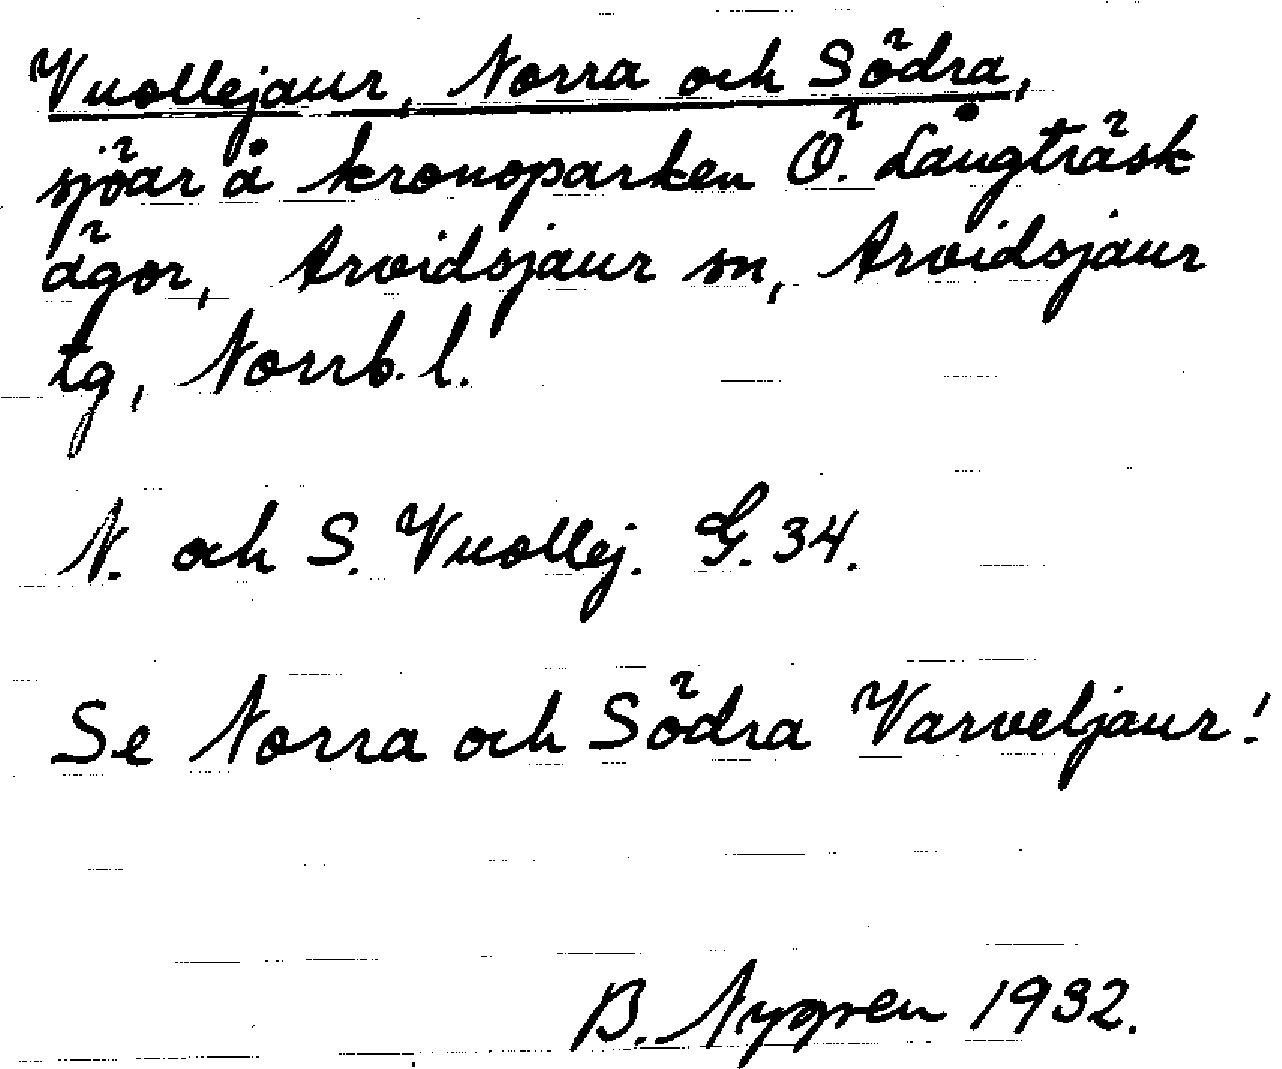 Vuollejaur, Norra och Södra,
sjöar å kronoparken Ö. Långträsk
ägor, Arvidsjaur sn, Arvidsjaur
tg, Norrb. l.
N. och S. Vuollej. G. 34.
Se Norra och Södra Varveljaur!
B. Nygren 1932.